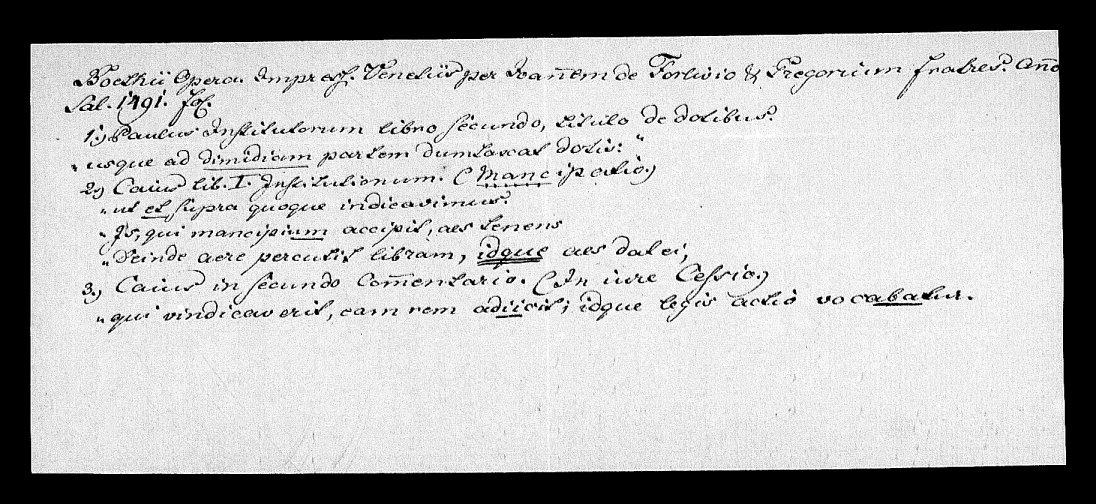 Boethii Opera. Impress. Venetiis per Ioañem de Forlivio & Gregorium fratres. Año
Sal. 1491. fol.
1.) Paulus Institutorum libro secundo, titulo de dotibus.
„usque ad dimidiam partem dumtaxat dotis:"
2.) Caius lib. I. Institutionum. (Mancipatio)
„ut et supra quoque indicavimus.
„Is, qui mancipium accipit, aes tenens
„Deinde aere percutit libram, idque aes dat ei,
3.) Caius in secundo Com̄entario. (In iure Cessio)
„qui vindicaverit, eam rem adiicit; idque legis actio vocabatur.